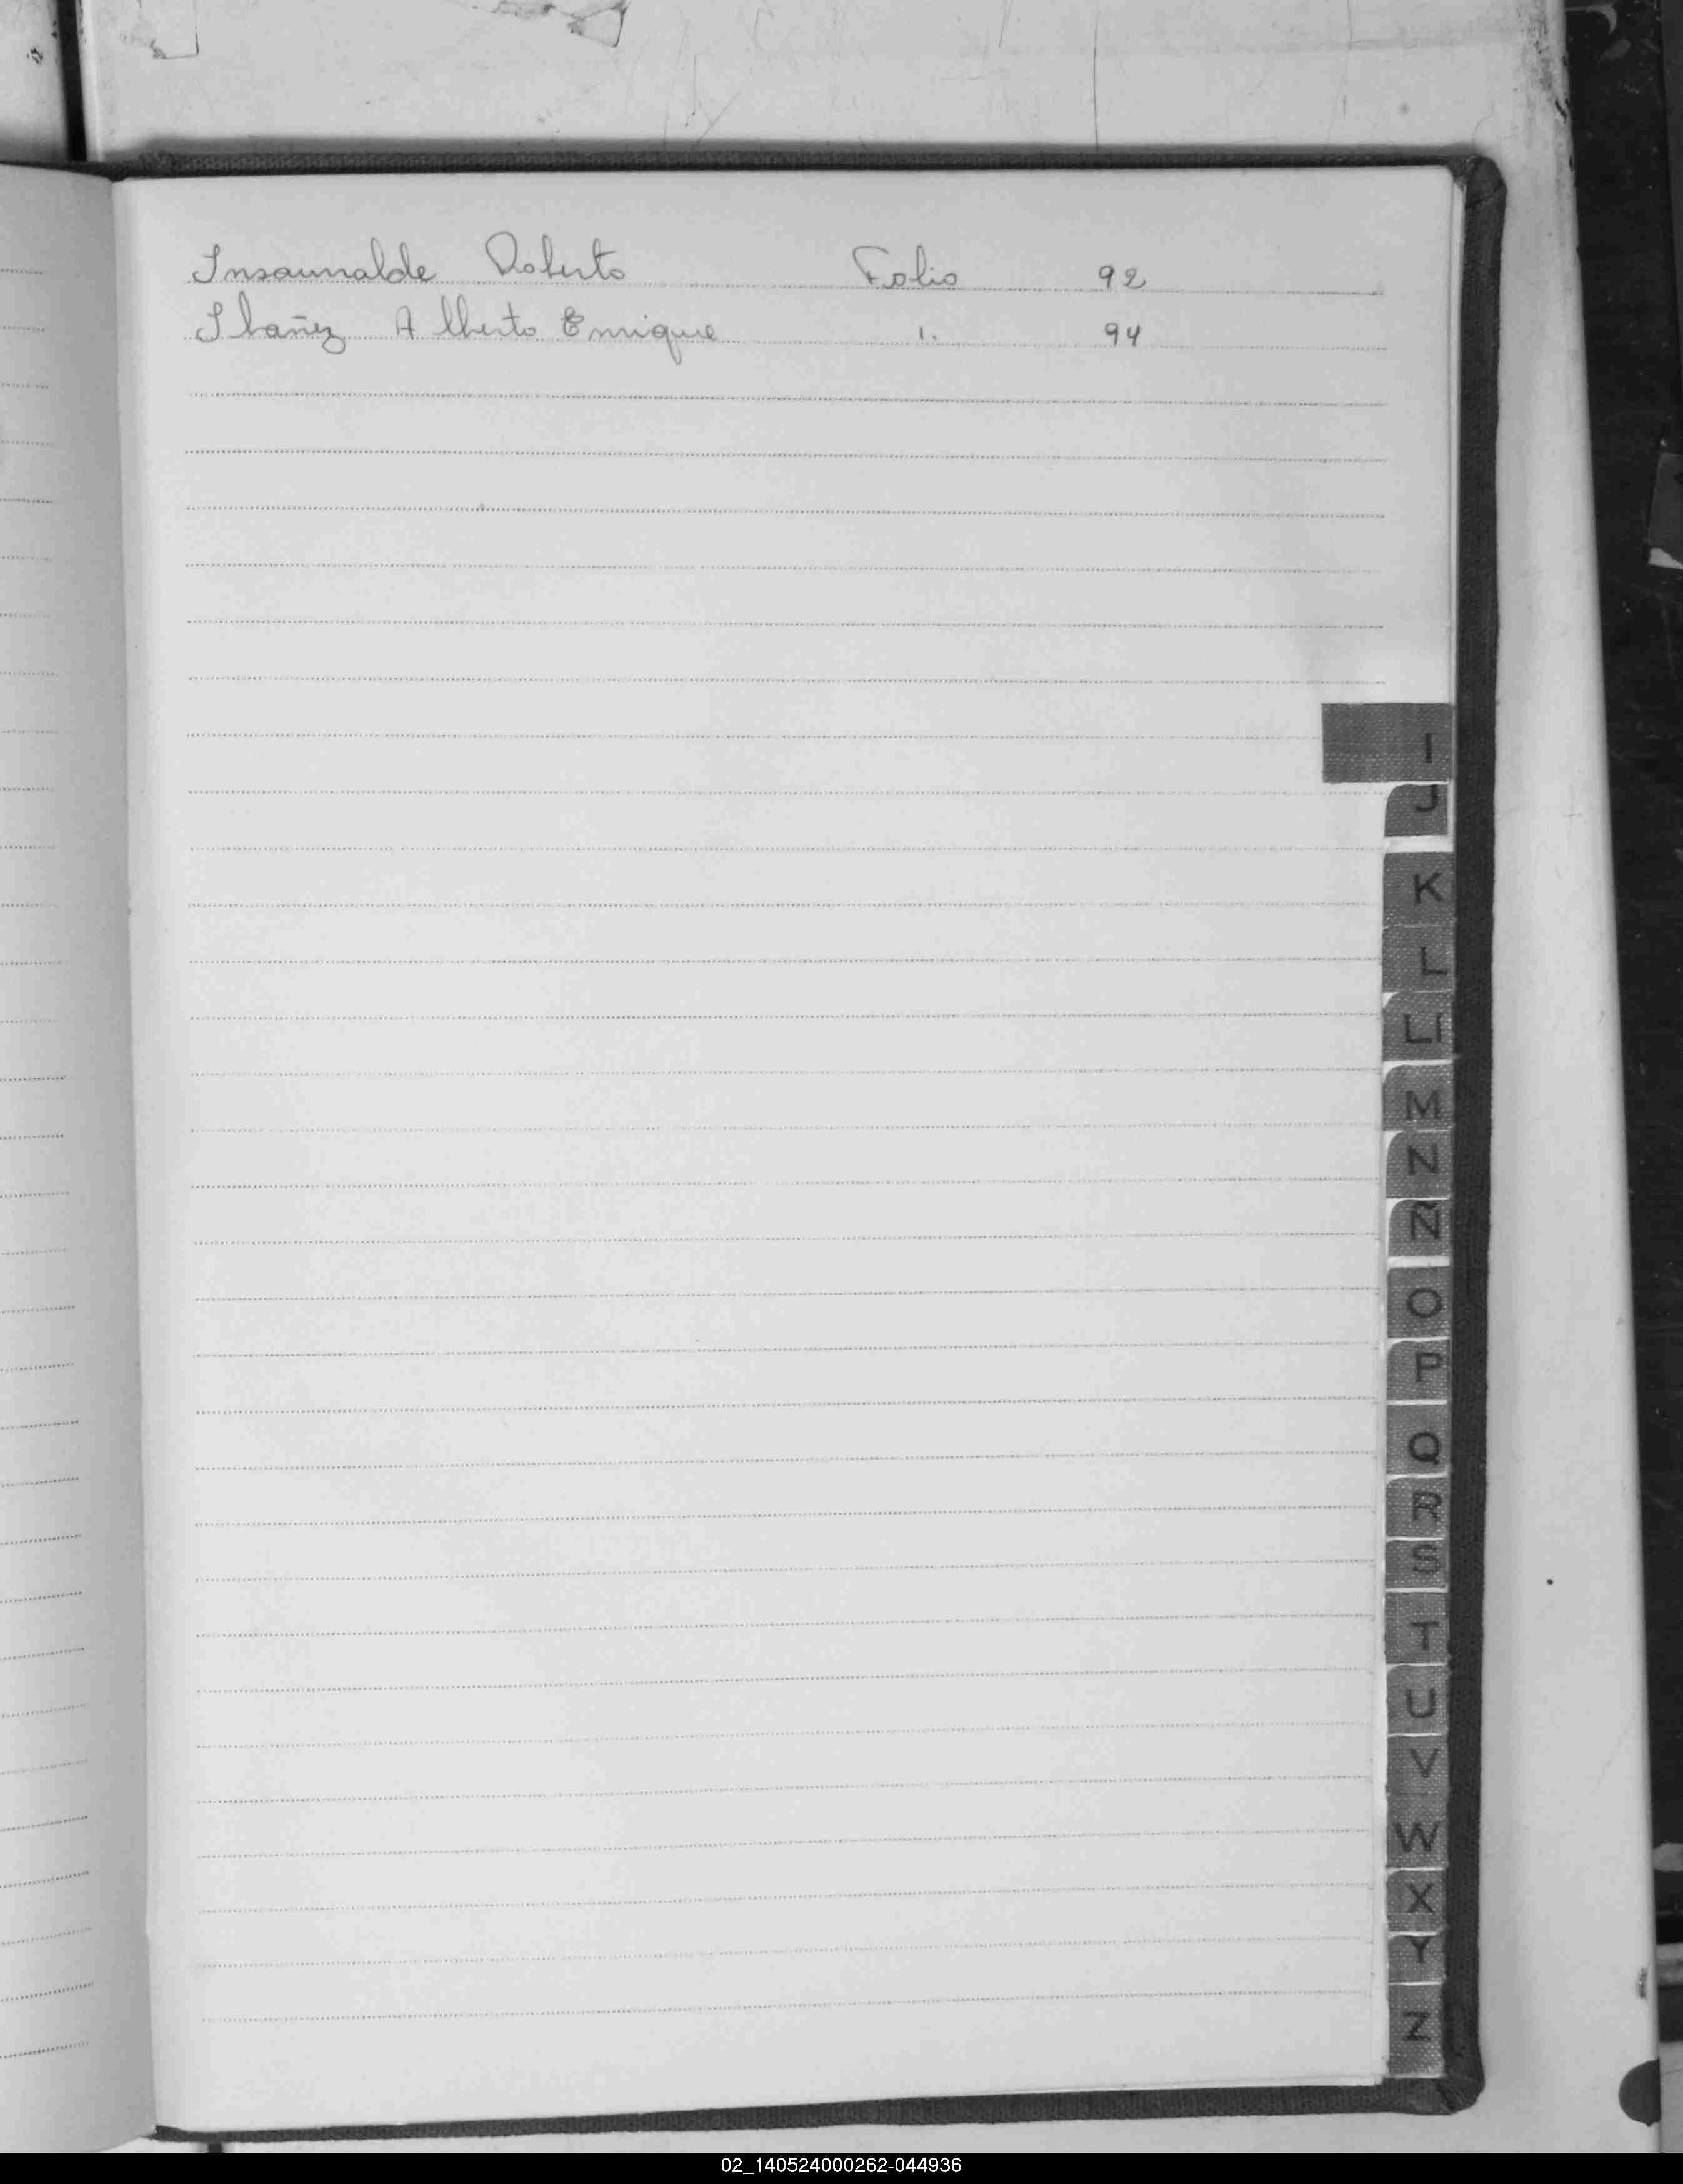 Insaurralde Roberto Folio 92
Ibañez Alberto Enrique 1. 94
I
J
K
L
Ll
M
N
Ñ
O
P
Q
R
S
T
U
V
W
X
Y
Z
02_140524000262-044936